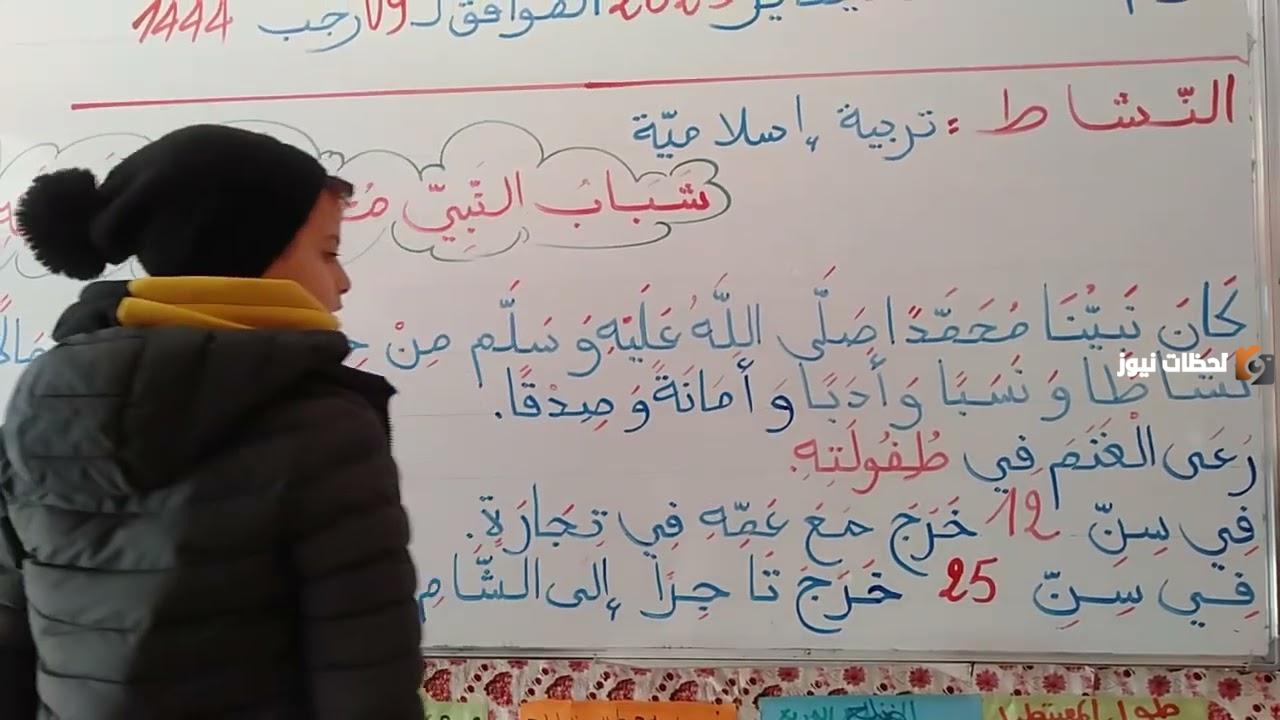 2023 الموافق لـ 09 رجب 1444
النّشاط : تربية إسلاميّة
شَبَابُ النَّبِيِّ
كَانَ نَبِيُّنَا مُحَمَّدًا صَلَّى اللَّهُ عَلَيْهِ وَسَلَّم مِنْ
نَشَاطًا وَ نَسَبًا وَ أَدَبًا وَ أَمَانَةً وَ صِدْقًا.
رَعَى الْغَنَمَ فِي طُفُولَتِهِ.
فِي سِنِّ 12 خَرَجَ مَعَ عَمِّهِ فِي تِجَارَةٍ.
فِي سِنِّ 25 خَرَجَ تَاجِرًا إلى الشَّامِ
لحظات نيوز